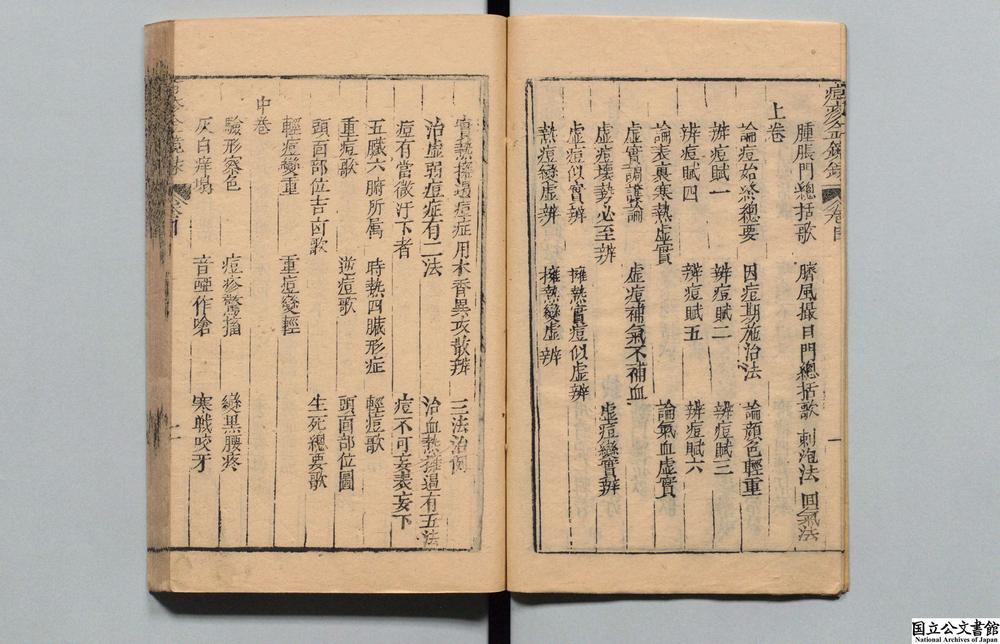 痘疹金鏡錄 卷目
腫脹門總括歌 臍風撮口門總括歌 刺泡法 回氣法
上卷
論痘始終總要 因痘期施治法 論顏色輕重
辨痘賦一 辨痘賦二 辨痘賦三
辨痘賦四 辨痘賦五 辨痘賦六
論表裏寒熱虛實 論氣血虛實
虛實調護論 虛痘補氣不補血
虛痘壞勢必至辨 虛痘變實辨
虛痘似實辨 擁熱實痘似虛辨
熱痘變虛辨 擁熱變虛辨
一
實熱擁遏痘症用木香異攻散辨 三法治例
治虛弱痘症有二法 治血熱擁遏有五法
痘有當微汗下者 痘不可妄表妄下
五臟六腑所屬 時熱四臟形症 輕痘歌
重痘歌 逆痘歌 頭面部位圖
頭面部位吉凶歌 生死總要歌
輕痘變重 重痘變輕
中卷
驗形察色 痘疹驚搐 變黑腰疼
灰白痒塌 音啞作嗆 寒戰咬牙
二
国立公文書館
National Archives of Japan